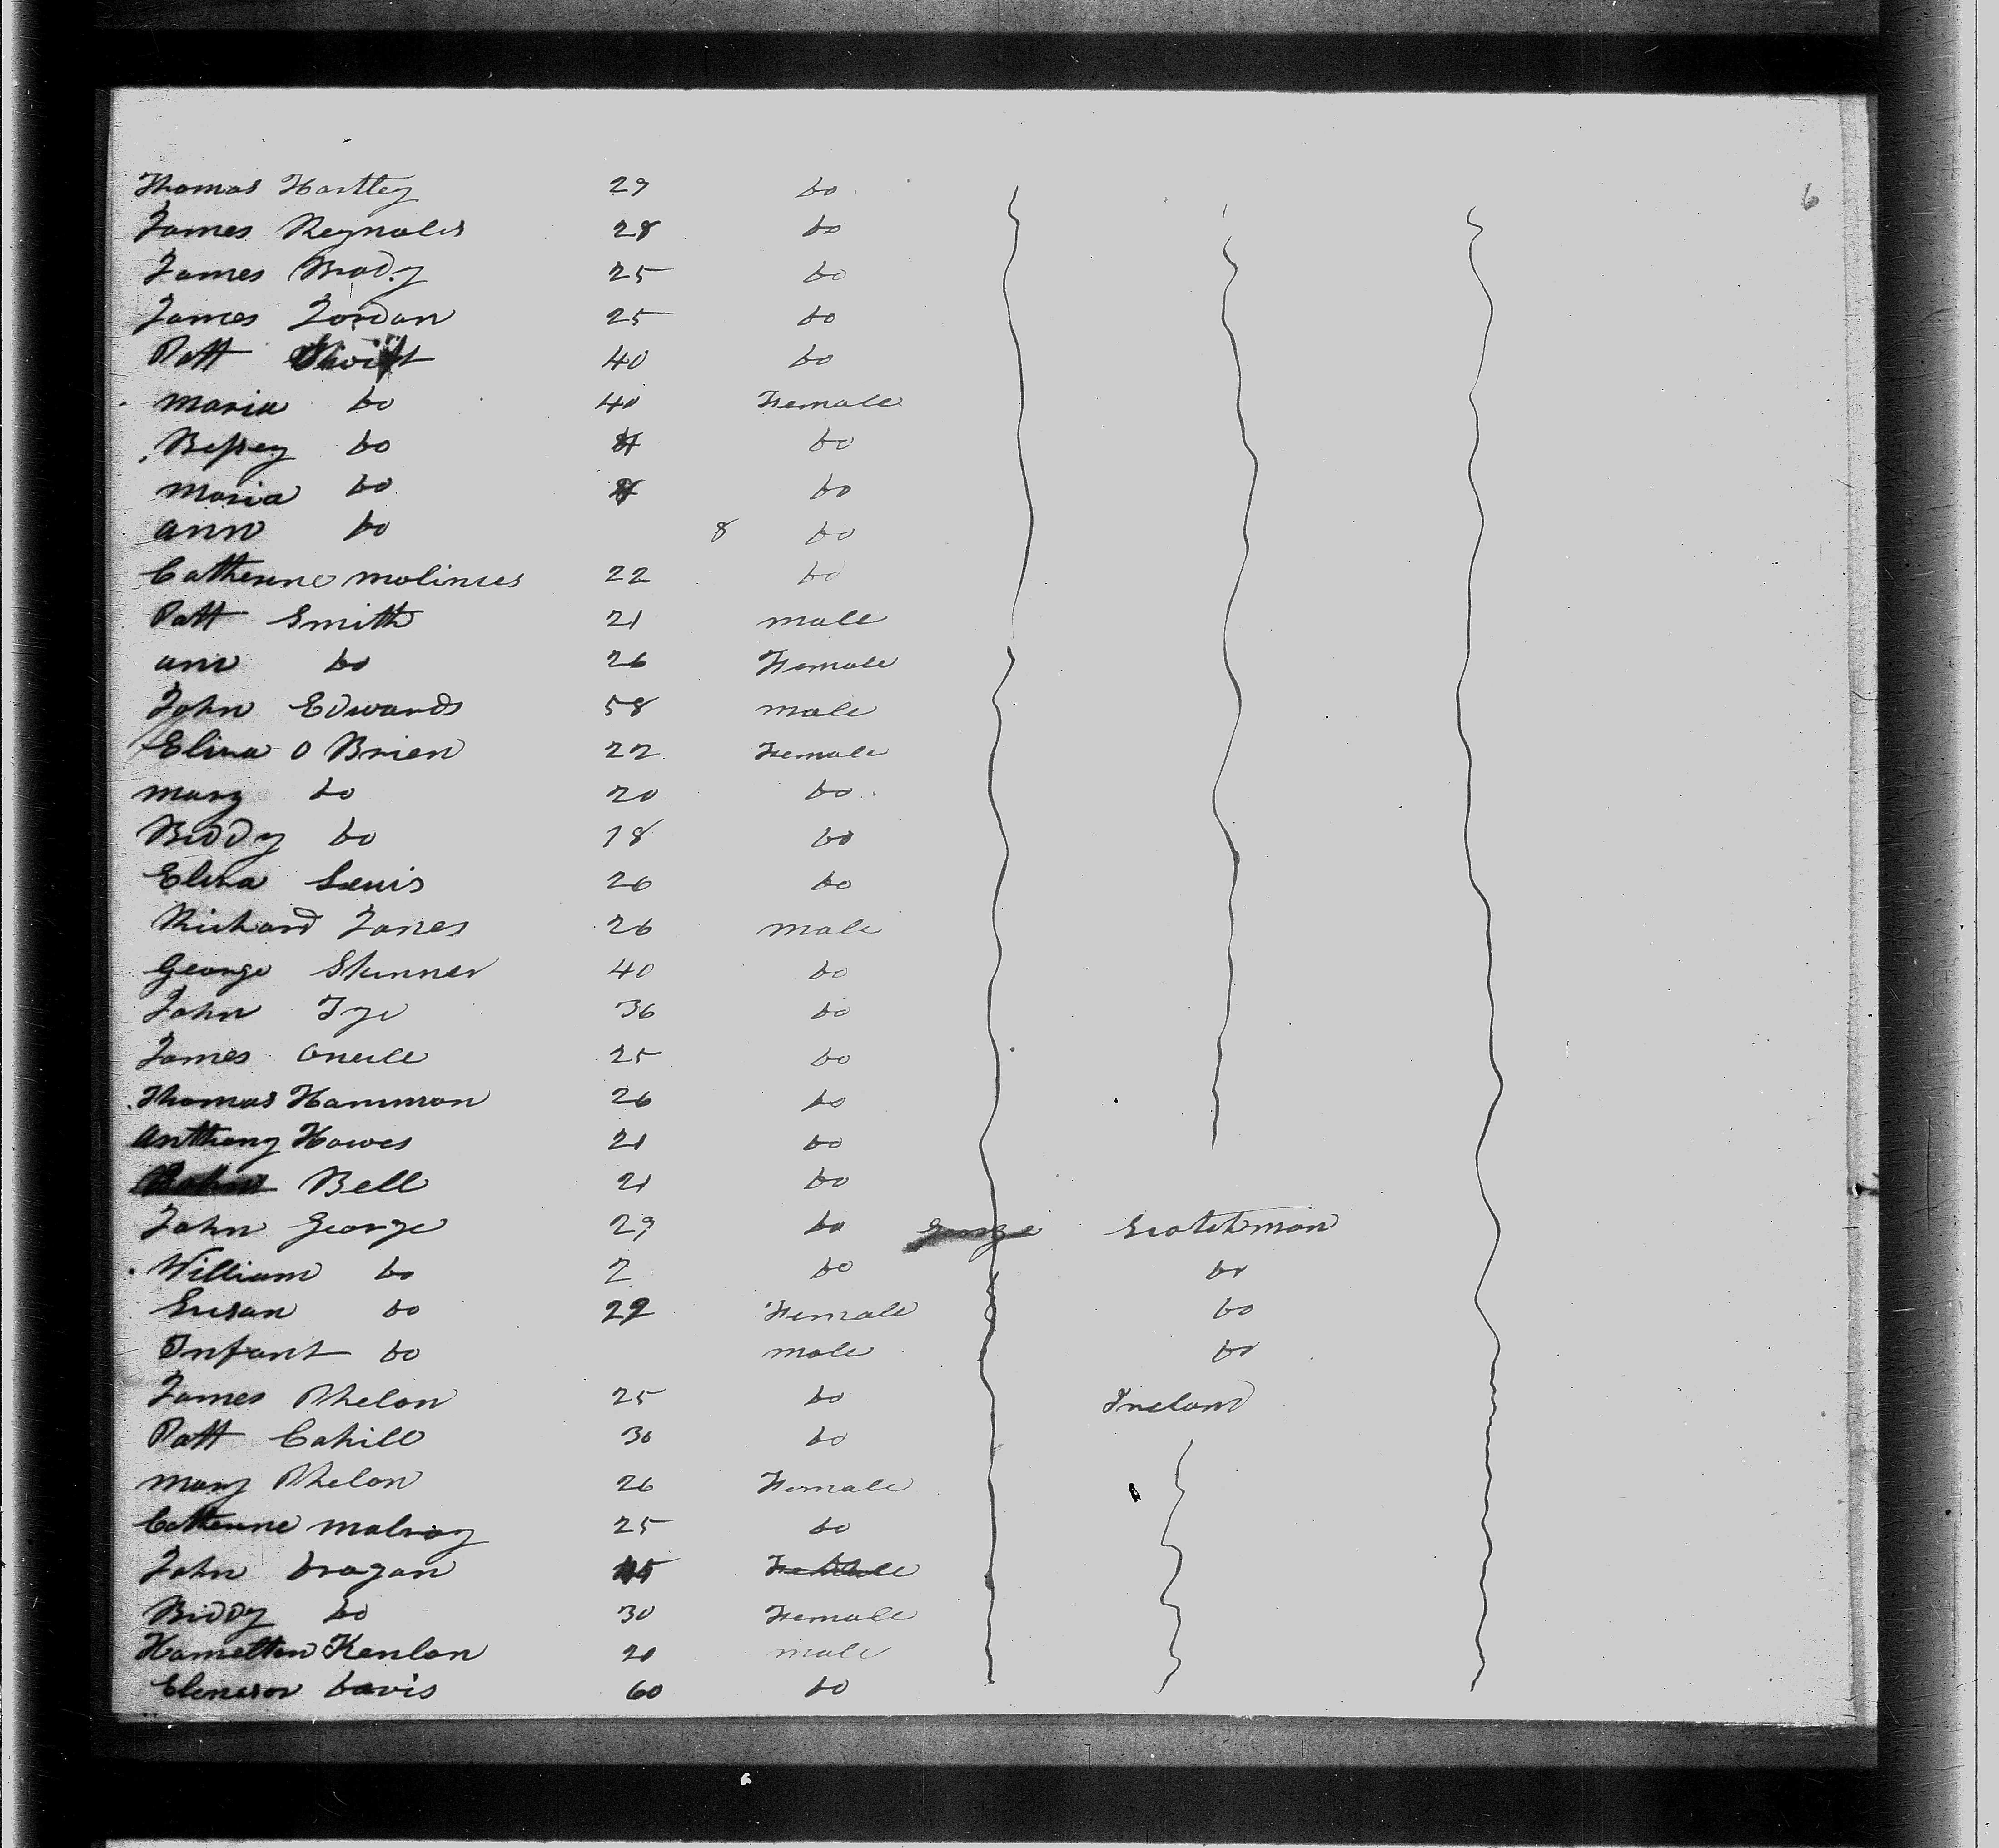 6
Thomas Hartley 29 do
James Reynolds 28 do
James Brady 25 do
James Jordan 25 do
Patt 40 do
Maria do 40 Female
Bessey do do
Maria do do
Ann do 8 do
Catherine Molinees 22 do
Patt Smith 21 male
Ann do 26 Female
John Edwards 58 male
Eliza O Brien 22 Female
Mary do 20 do
Biddy do 18 do
Eliza Lewis 26 do
Richard Jones 26 male
George Skinner 40 do
John Tye 36 do
James Oneile 25 do
Thomas Hammon 26 do
Anthony Howes 21 do
Bell 21 do
John George 29 do George Scotchman
William do 2 do do
Susan do 22 Female do
Infant do male do
James Phelon 25 do Ireland
Patt Cahill 30 do
Mary Phelon 26 Female
Catherine Malroy 25 do
John Dragan
Biddy do 30 Female
Hamelton Kenlon 20 male
Elenesor Davis 60 do